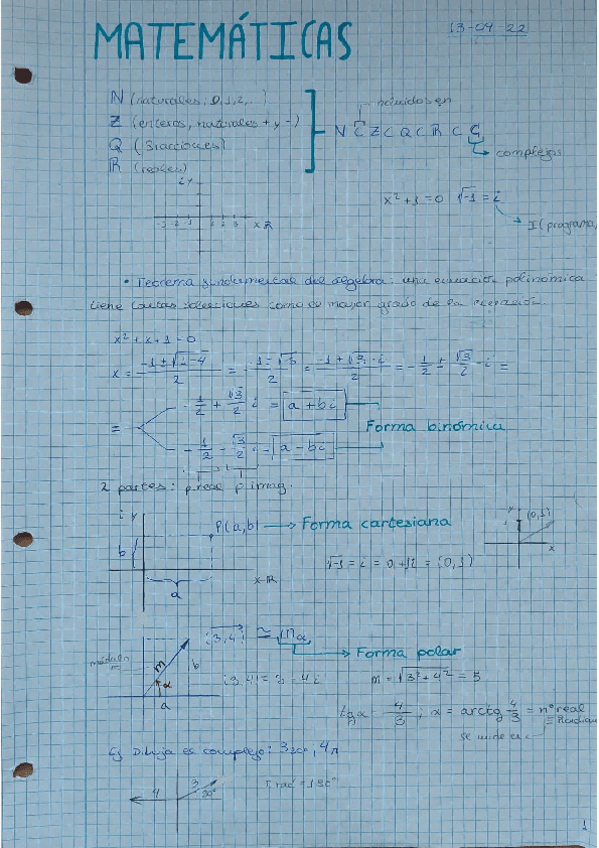 MATEMÁTICAS
13-04-22
N (naturales, 0,1,2,...)
Z (enteros, naturales + y -)
Q (fracciones)
R (reales)
incluidos en
N C Z C Q C R C C
complejos
x² + 1 = 0 √-1 = i
I (programa,
i y
-3 -2 -1 1 2 3 x R
• Teorema fundamental del álgebra: una ecuación polinómica
tiene tantas soluciones como el mayor grado de la ecuación.
x² + x + 1 = 0
x = -1 ± √1-4 / 2 = -1 ± √-3 / 2 = -1 ± √3 · i / 2 = -1/2 ± √3/2 · i =
= -1/2 + √3/2 i = a + bi
Forma binómica
-1/2 - √3/2 i = a - bi
2 partes: p. real p. imag.
i y
P(a,b) → Forma cartesiana
b
a
x R
y (0,1)
x
√-1 = i = 0 + 1i = (0,1)
(3,4) ≅ mα
Forma polar
módulo
m
α
b
a
(3,4) = 3 + 4i
m = √3² + 4² = 5
tg α = 4/3 ; α = arctg 4/3 = nº real
se mide en
Ej Dibuja es complejo: 3 30º, 4 π
4
3
30º
π rad = 180º
1